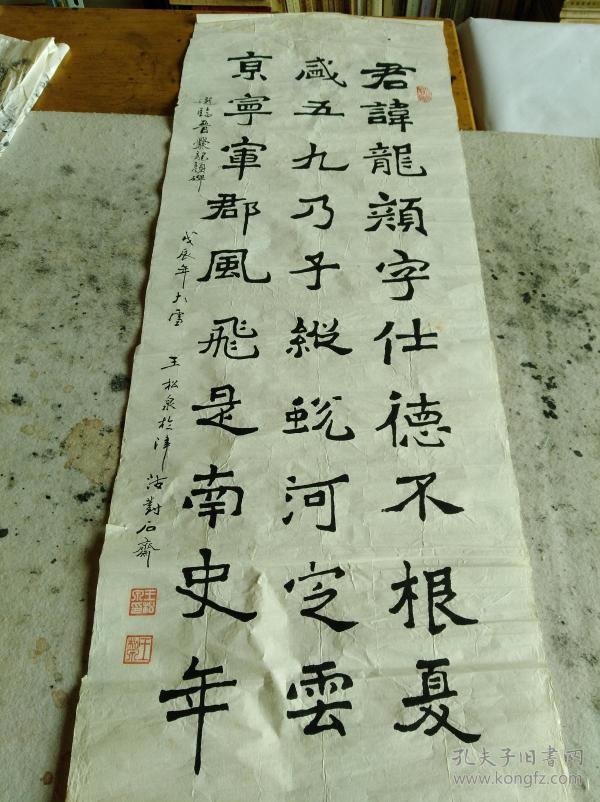 君諱龍顔字仕德不根夏
咸五九乃子縱蛻河定雲
京寧軍郡風飛是南史年
臨晉爨龍顔碑
戊辰年大雪 王松泉於津沽對石齋
孔夫子旧書网
www.kongfz.com